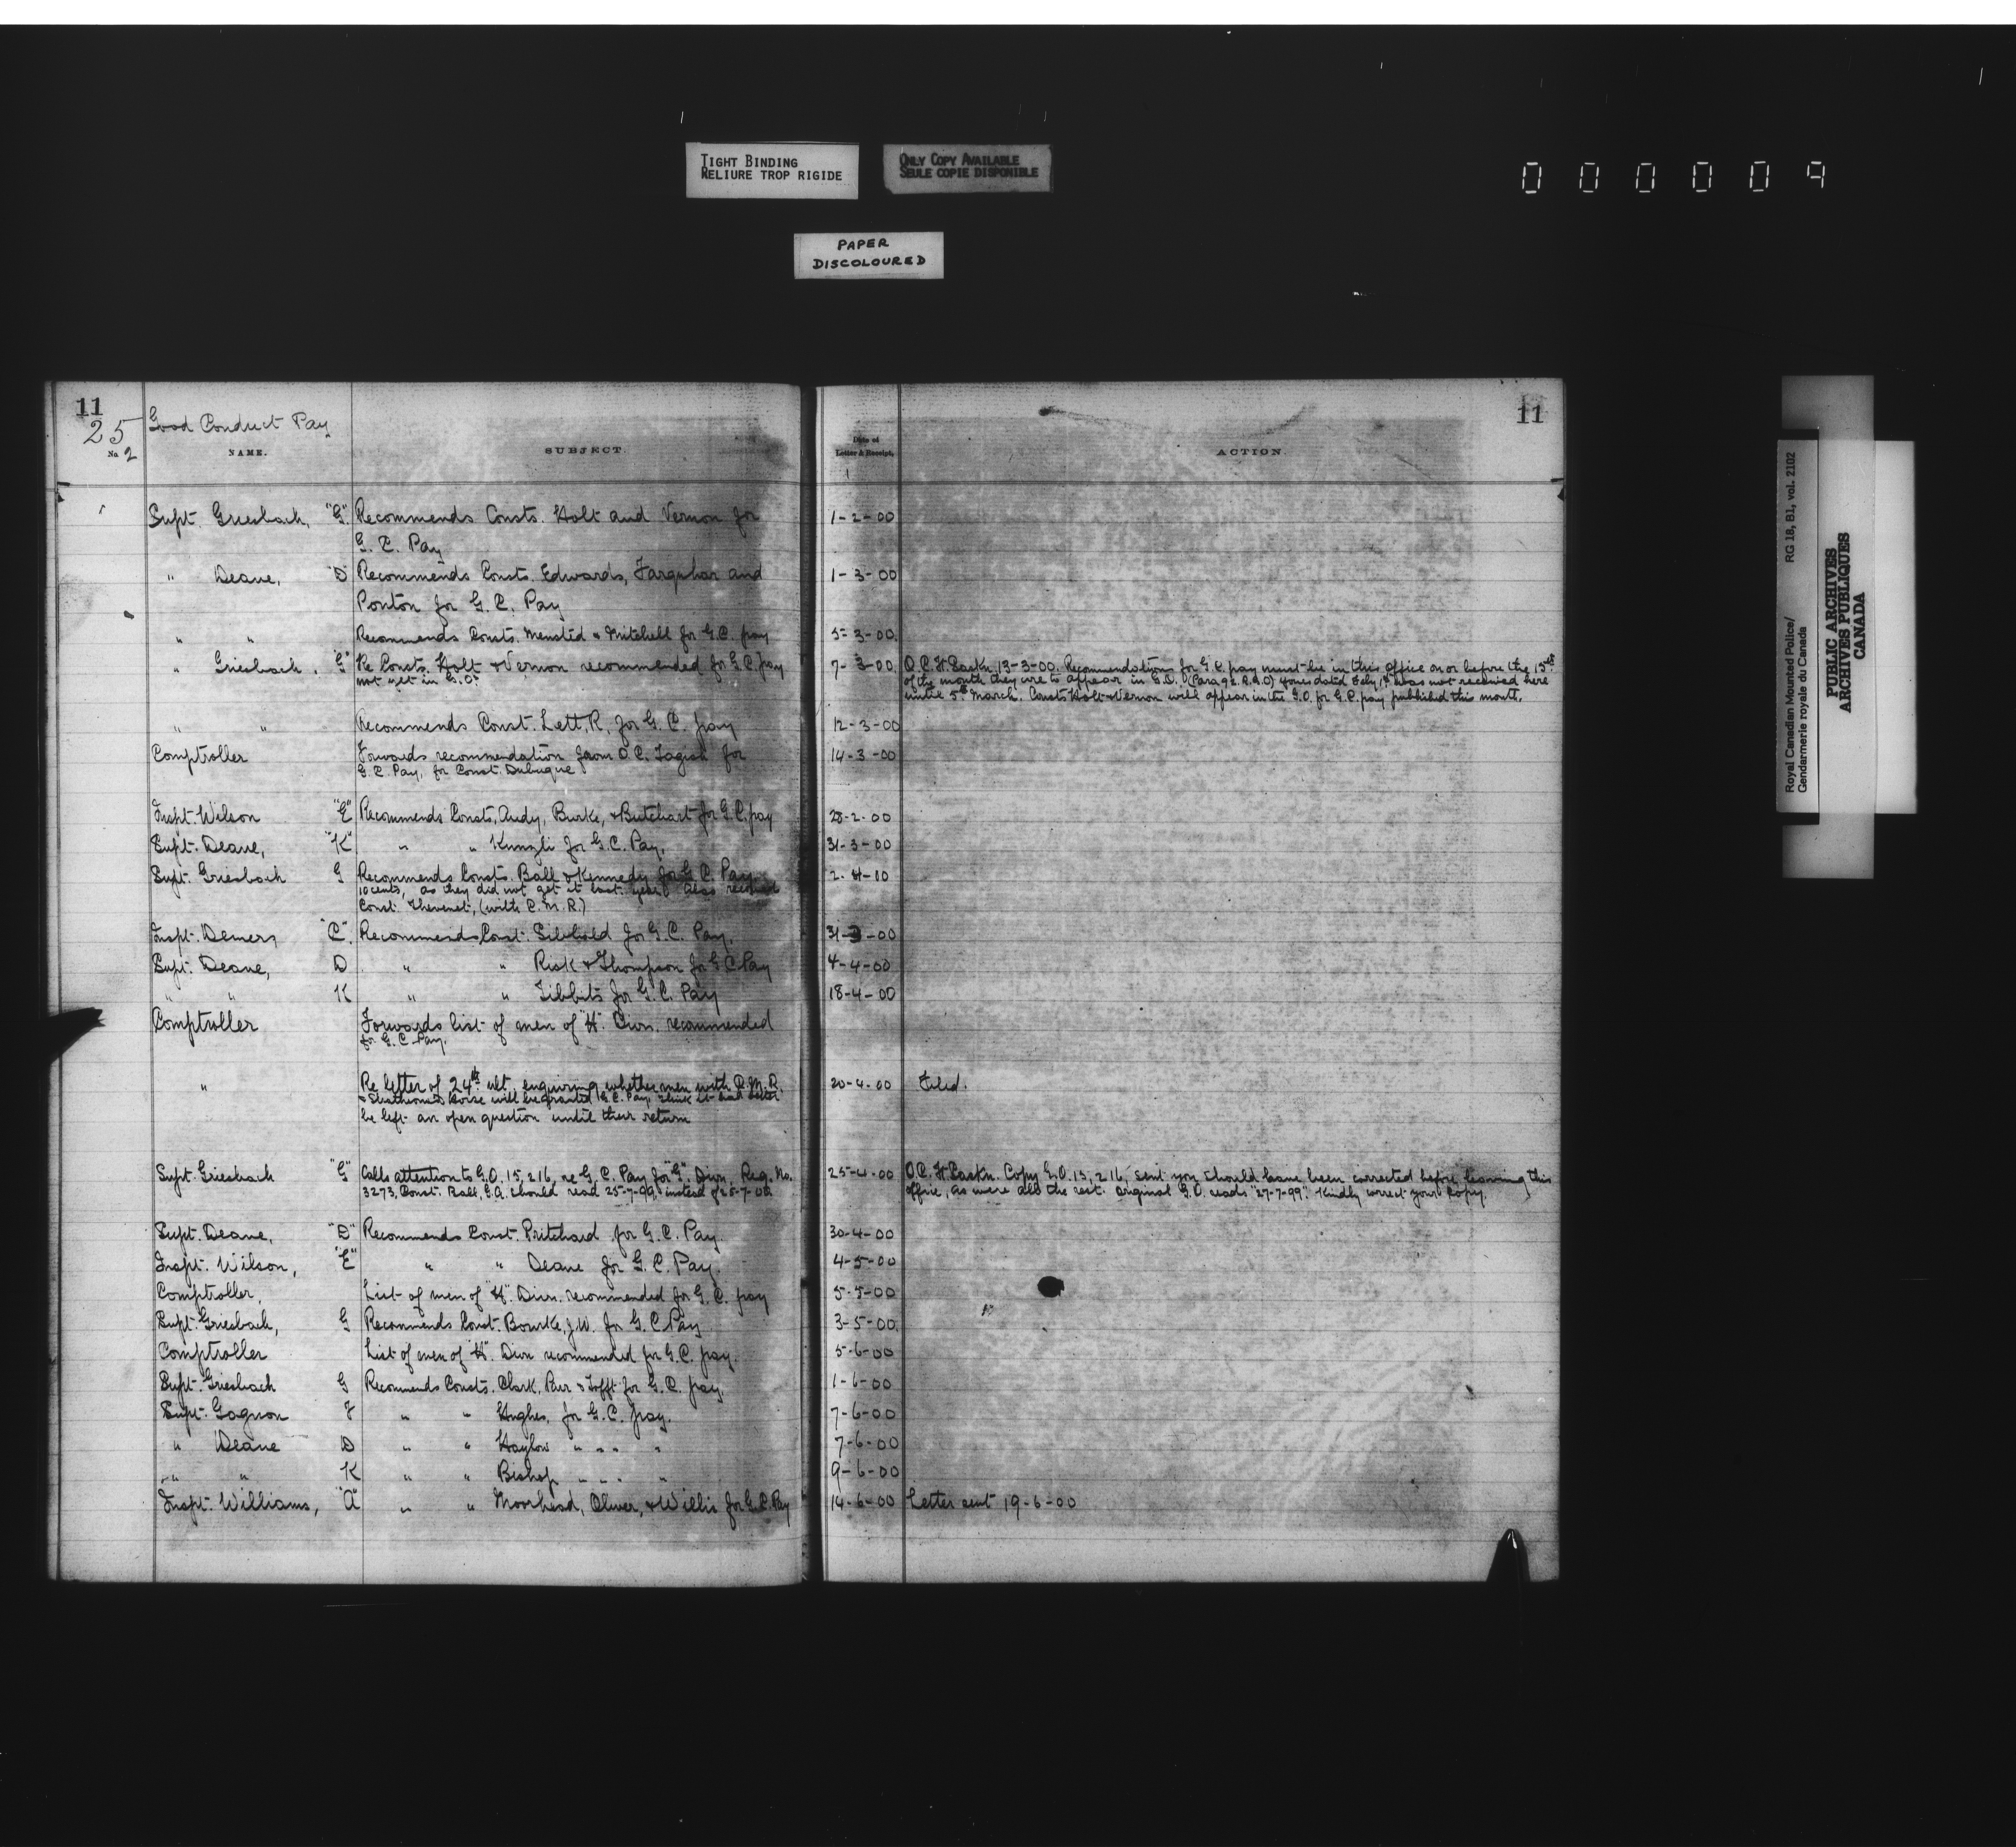 TIGHT BINDING
RELIURE TROP RIGIDE
ONLY COPY AVAILABLE
SEULE COPIE DISPONIBLE
000009
PAPER
DISCOLOURED
11
25
2
Good Conduct Pay
No
NAME.
SUBJECT.
Date of
Letter & Receipt.
ACTION.
11
Supt. Griesbach, "G" Recommends Consts. Holt and Vernon for 1-2-00
G. C. Pay
" Deane, "D" Recommends Consts. Edwards, Farquhar and 1-3-00
Ponton for G. C. Pay
" " Recommends Consts. " Mitchell for G.C. pay 5-3-00
" Griesbach, "G" Re Consts. Holt & Vernon recommended for G.C. pay 7-3-00 O.C. H. Saskn. 13-3-00. Recommendations for G.C. pay must be in this office on or before the 15th
not yet in G.O. of the month they are to appear in G.O. yours dated Feby 1st was not received here
until 5th March. Consts Holt & Vernon will appear in the G.O. for G.C. pay published this month.
" " Recommends Const. Lett, R, for G. C. pay 12-3-00
Comptroller Forwards recommendation from O.C. Tagish for 14-3-00
G.C. Pay, for Const. Dubuque
Inspt. Wilson "E" Recommends Consts, Andy, Burke, & Butchart for G.C. pay 28-2-00
Supt. Deane, "K" " " Kunzli for G.C. Pay, 31-3-00
Supt. Griesbach G Recommends Consts. Ball & Kennedy for G C. Pay. 2-4-00
10 cents, as they did not get it last year. Also recomd
Const. Thevenet, (with C.M.R.)
Inspt. Demers "C". Recommends Const. Sibbald for G.C. Pay. 31-3-00
Supt. Deane, D " " Risk & Thompson for G C Pay 4-4-00
" " K " " Tibbits for G.C. Pay 18-4-00
Comptroller Forwards list of men of "H" Divn. recommended
for G.C. Pay.
" Re letter of 24th ult. enquiring whether men with C.M.R. 20-4-00 Filed.
& Strathcona's Horse will be granted G.C. Pay, think it had better
be left an open question until their return
Supt. Griesbach "G" Calls attention to G.O. 15,216, re G.C. Pay for "G" Divn, Reg. No. 25-4-00 O.C. H. Saskn. Copy G.O. 15,216, sent you should have been corrected before leaving this
3273, Const. Ball, G.A. should read 25-7-99, instead of 25-7-00 office, as were all the rest. Original G.O. reads "27-7-99". Kindly correct your copy.
Supt. Deane, "D" Recommends Const. Pritchard for G.C. Pay. 30-4-00
Inspt. Wilson, "E" " " Deane for G. C. Pay. 4-5-00
Comptroller, List of men of "H". Divn. recommended for G.C. pay 5-5-00
Supt. Griesbach, G Recommends Const. Bourke, J.W. for G.C Pay 3-5-00
Comptroller List of men of "H". Divn recommended for G.C. pay. 5-6-00
Supt. Griesbach G Recommends Consts. Clark, Parr & Tofft for G.C. pay, 1-6-00
Supt. Gagnon F " " Hughes, for G.C. pay. 7-6-00
" Deane D " " Haylow " " " " 7-6-00
" " K " " Bishop " " " " 9-6-00
Inspt. Williams, "A" " " Moorhead, Oliver, & Willis for G.C. Pay 14-6-00 Letter sent 19-6-00
Royal Canadian Mounted Police/ RG 18, B1, vol. 2102
Gendarmerie royale du Canada
PUBLIC ARCHIVES
ARCHIVES PUBLIQUES
CANADA